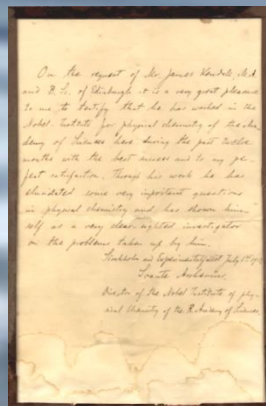 On the request of Mr. James Kendall, M.A.
and B. Sc. of Edinburgh it is a very great pleasure
to me, to testify that he has worked in the
Nobel-Institute for physical chemistry of the Aca-
demy of Sciences here during the past twelve
months with the best success and to my per-
fect satisfaction. Through his work he has
elucidated some very important questions
in physical chemistry and has shown him-
self as a very clear-sighted investigator
on the problems taken up by him.
Stockholm and Experimentalfältet July 6th
Svante Arrhenius.
Director of the Nobel Institute of phy-
sical Chemistry of the R. Academy of Sciences.